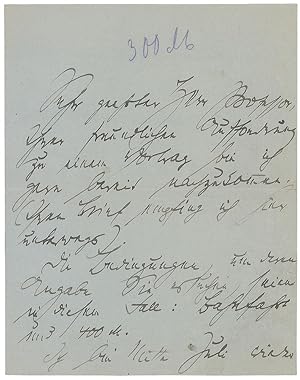 300 M
Sehr geehrter Herr Professor
Ihrer freundlichen Aufforderung
zu einem Vortrag bin ich
gern bereit nachzukommen.
(Ihren Brief empfing ich
unterwegs).
Die Bedingungen, um deren
Angabe Sie, seien
in diesem Fall: Bahnfahrt
und 400 M.
Ich bin Mitte Juli